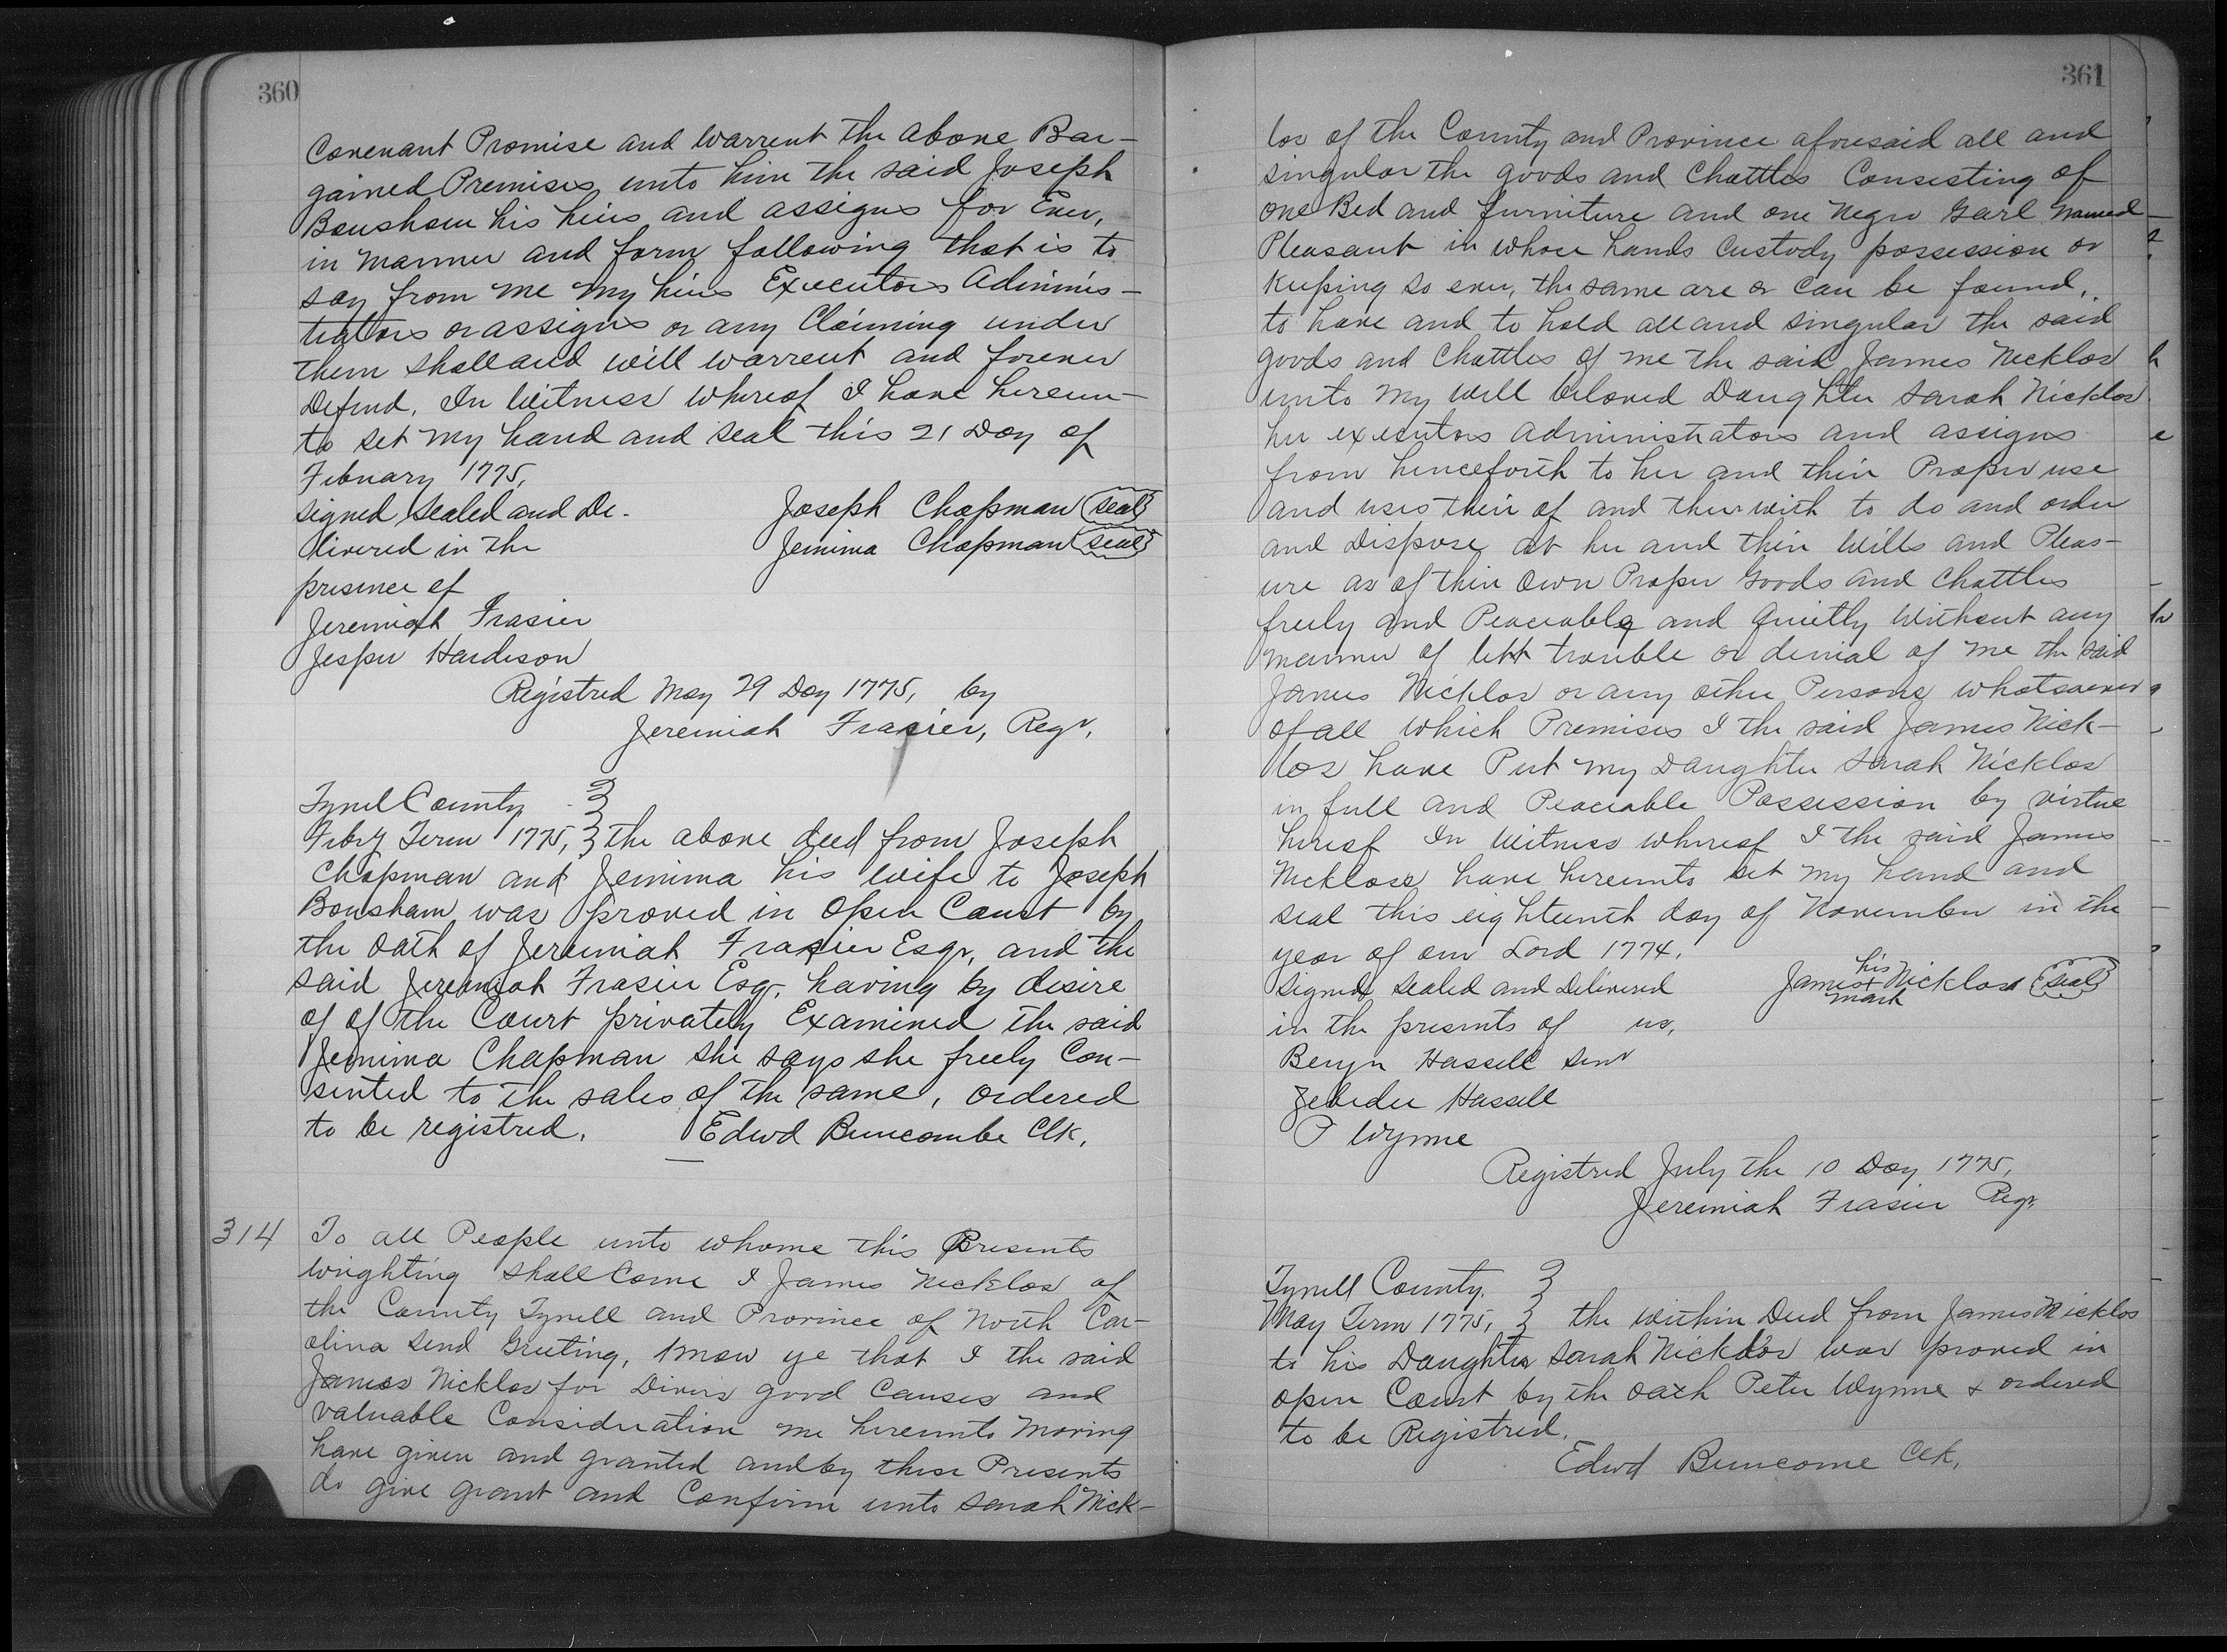 360
Covenant Promise and Warrent the above Bar-
gained Premises unto him the said Joseph
Bonsham his heirs and assigns for Ever,
in Manner and form following that is to
say from me my heirs Executors Adminis-
trators or assigns or any Claiming under
them shall and will warrent and forever
Defend. In Witness whereof I have hereun-
to set my hand and seal this 21 Day of
Febuary 1775,
signed sealed and De-
livered in the
presence of
Joseph Chapman (seal)
Jemima Chapman (seal)
Jeremiah Frasier
Jesper Hardison
Registred May 29 Day 1775, by
Jeremiah Frasier, Regr.
Tyrell County
Feby Term 1775, the above deed from Joseph
Chapman and Jemima his wife to Joseph
Bonsham was proved in open Court by
the oath of Jeremiah Frasier Esqr, and the
said Jeremiah Frasier Esqr. having by desire
of of the Court privately Examined the said
Jemima Chapman she says she freely Con-
sented to the sales of the same, ordered
to be registred. Edwd Buncombe Clk.
314
To all People unto whome this Presents
Wrighting shall Come I James Nicklos of
the County Tyrell and Province of North Car-
olina Send Greeting, Know ye that I the said
James Nicklos for Divers good Causes and
valuable Consideration me hereunto Moving
have given and granted and by these Presents
do give grant and Confirm unto Sarah Nick-
361
los of the County and Province aforesaid all and
singular the goods and Chattles Consisting of
one Bed and furniture and one Negro Garl named
Pleasant in whose hands Custody possession or
Keeping so ever, the same are or can be found,
to have and to hold all and singular the said
goods and Chattles of me the said James Nicklos
unto my well beloved Daughter Sarah Nicklos
her executors administrators and assigns
from henceforth to her and their Proper use
and uses their of and therwith to do and order
and Dispose at her and their Wills and Pleas-
ure as of their Own Proper Goods and Chattles
freely and Peaceably and Quietly Without any
manner of lett trouble or denial of me the said
James Nicklos or any other Persons whatsoever
of all which Premises I the said James Nick-
los have Put my Daughter Sarah Nicklos
in full and Peaceable Possession by virtue
hereof In Witness whereof I the said James
Nickloss have hereunto set my hand and
seal this eighteenth day of November in the
year of our Lord 1774.
Signed sealed and Delivered
in the presents of us,
his
James + Nicklos (seal)
mark
Benjn Hassell Senr
Zebedee Hassell
P Wynne
Registred July the 10 Day 1775,
Jeremiah Frasier Regr.
Tyrell County.
May Term 1775, the within Deed from James Nicklos
to his Daughter Sarah Nicklos was proved in
open Court by the oath Peter Wynne & ordered
to be Registred.
Edwd Buncome Clk.